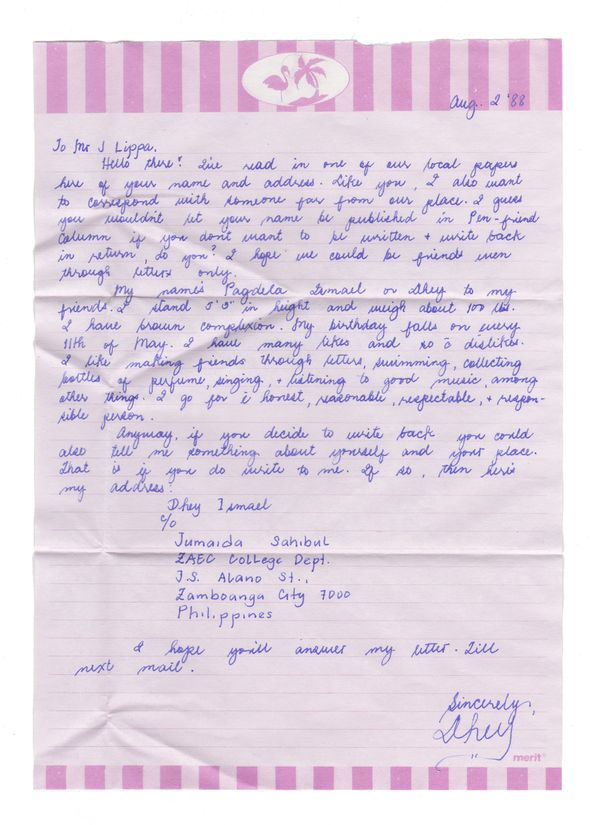 Aug. 2 '88
To Mr J Lippa,
Hello there! I've read in one of our local papers
here of your name and address. Like you, I also want
to correspond with someone far from our place. I guess
you wouldn't let your name be published in Pen-friend
Column if you don't want to be written + write back
in return, do you? I hope we could be friends even
through letters only.
My name's Pagdela Ismael or Dhey to my
friends. I stand 5'3" in height and weigh about 100 lbs.
I have brown complexion. My birthday falls on every
11th of May. I have many likes and so c̄ dislikes.
I like making friends through letters, swimming, collecting
bottles of perfume, singing, + listening to good music, among
other things. I go for c̄ honest, reasonable, respectable, + respon-
sible person.
Anyway, if you decide to write back you could
also tell me something about yourself and your place.
That is if you do write to me. If so, then here's
my address:
Dhey Ismael
c/o
Jumaida Sahibul
ZAEC College Dept.
J.S. Alano St.,
Zamboanga City 7000
Philippines
I hope you'll answer my letter. Till
next mail.
Sincerely,
Dhey
merit